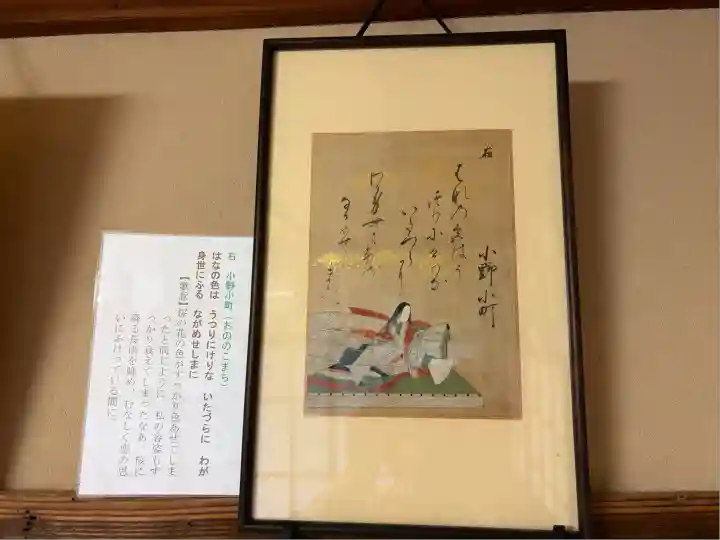 右
小野小町
はなの色はう
つりにけりな
いたつらに
わか身世にふる
なかめせしまに
右　小野小町（おののこまち）
はなの色は　うつりにけりな　いたづらに　わが
身世にふる　ながめせしまに
【歌意】桜の花の色がすっかり色あせてしま
ったと同じように、私の容姿もす
っかり衰えてしまったなあ。桜に
降る長雨を眺め、むなしく恋の思
いにふけっている間に。